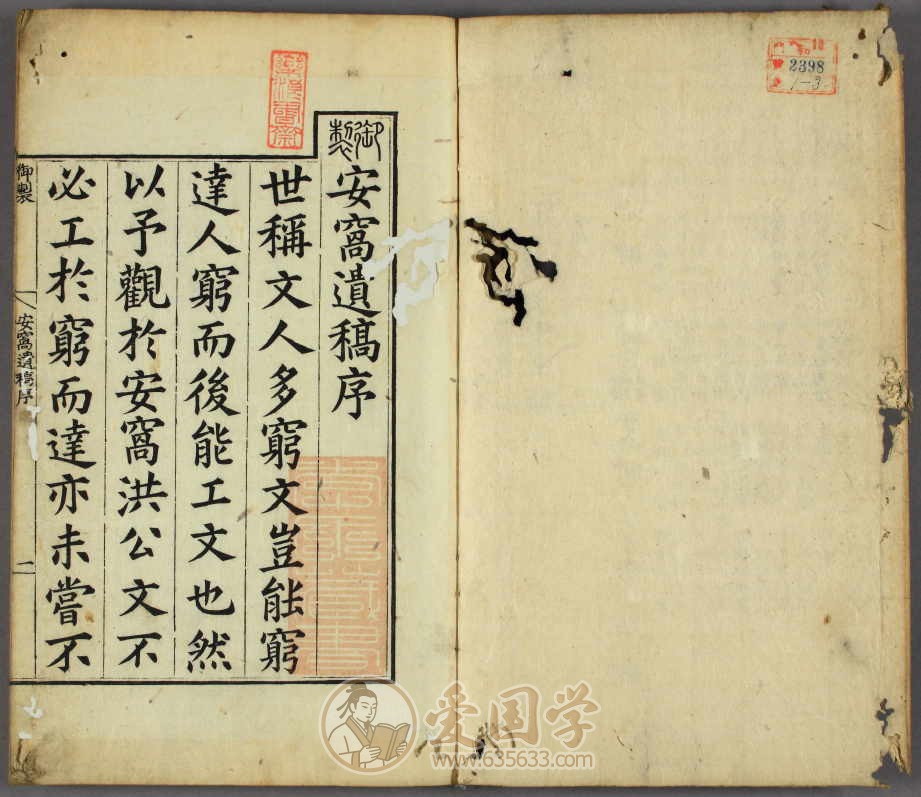 御製
安窩遺稿序
世稱文人多窮文豈能窮
達人窮而後能工文也然
以予觀於安窩洪公文不
必工於窮而達亦未嘗不
御製
安窩遺稿序
二
2398
1-3
爱国学
www.635633.com